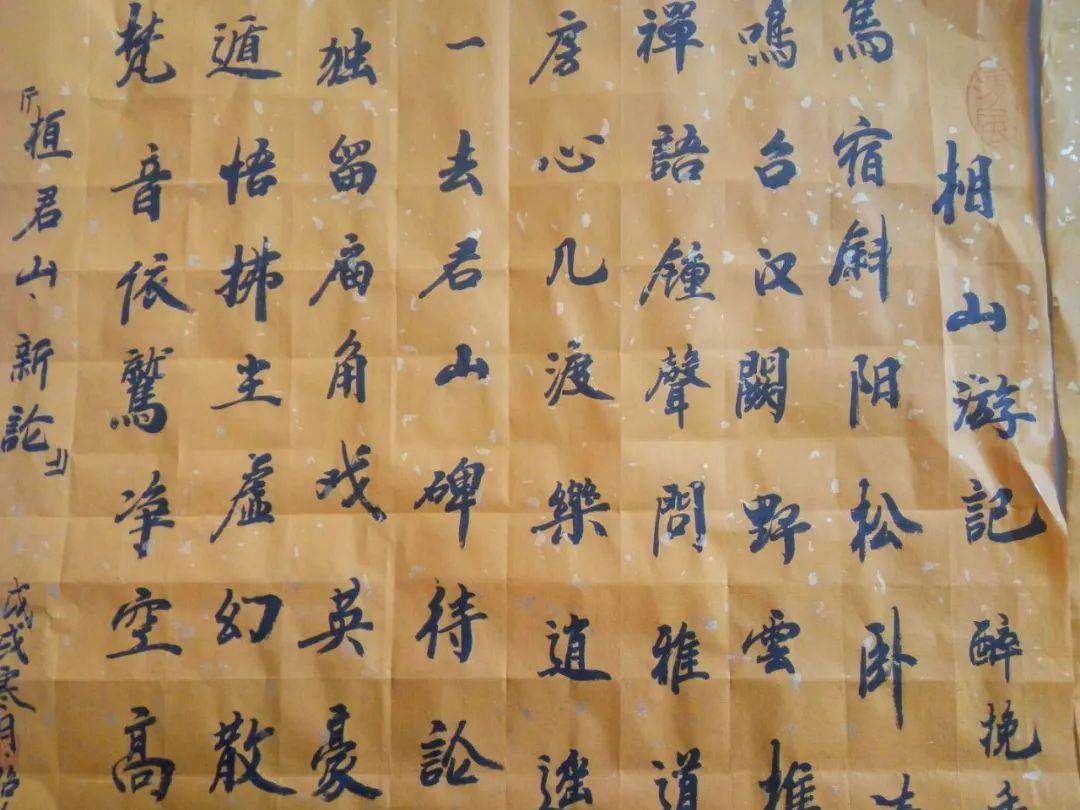 相山游记 醉挽
宿斜阳松卧
鸣台汉阙野雲推
禅語鐘聲問雅道
房心几渡樂逍遥
一去君山碑待論
独留庙角戏英豪
遁悟拂尘虚幻散
梵音依鷲净空高
『桓君山、新論』
戊戌寒月